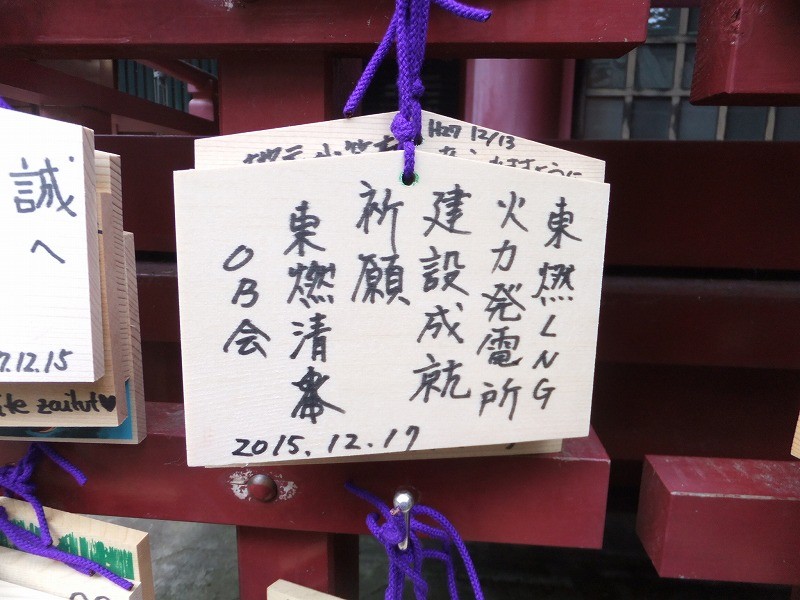 東燃LNG
火力発電所
建設成就
祈願
東燃清水
OB会
2015.12.17
H27 12/13
誠へ
7.12.15